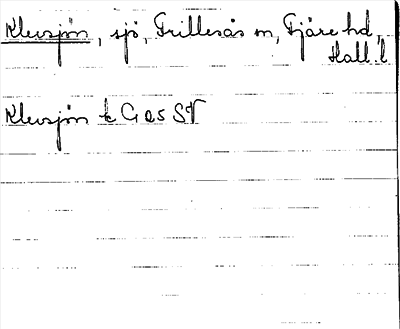 Klevsjön, sjö, Frillesås sn, Fjäre hd,
Hall. l
Klevsjön tk G a 5 SV